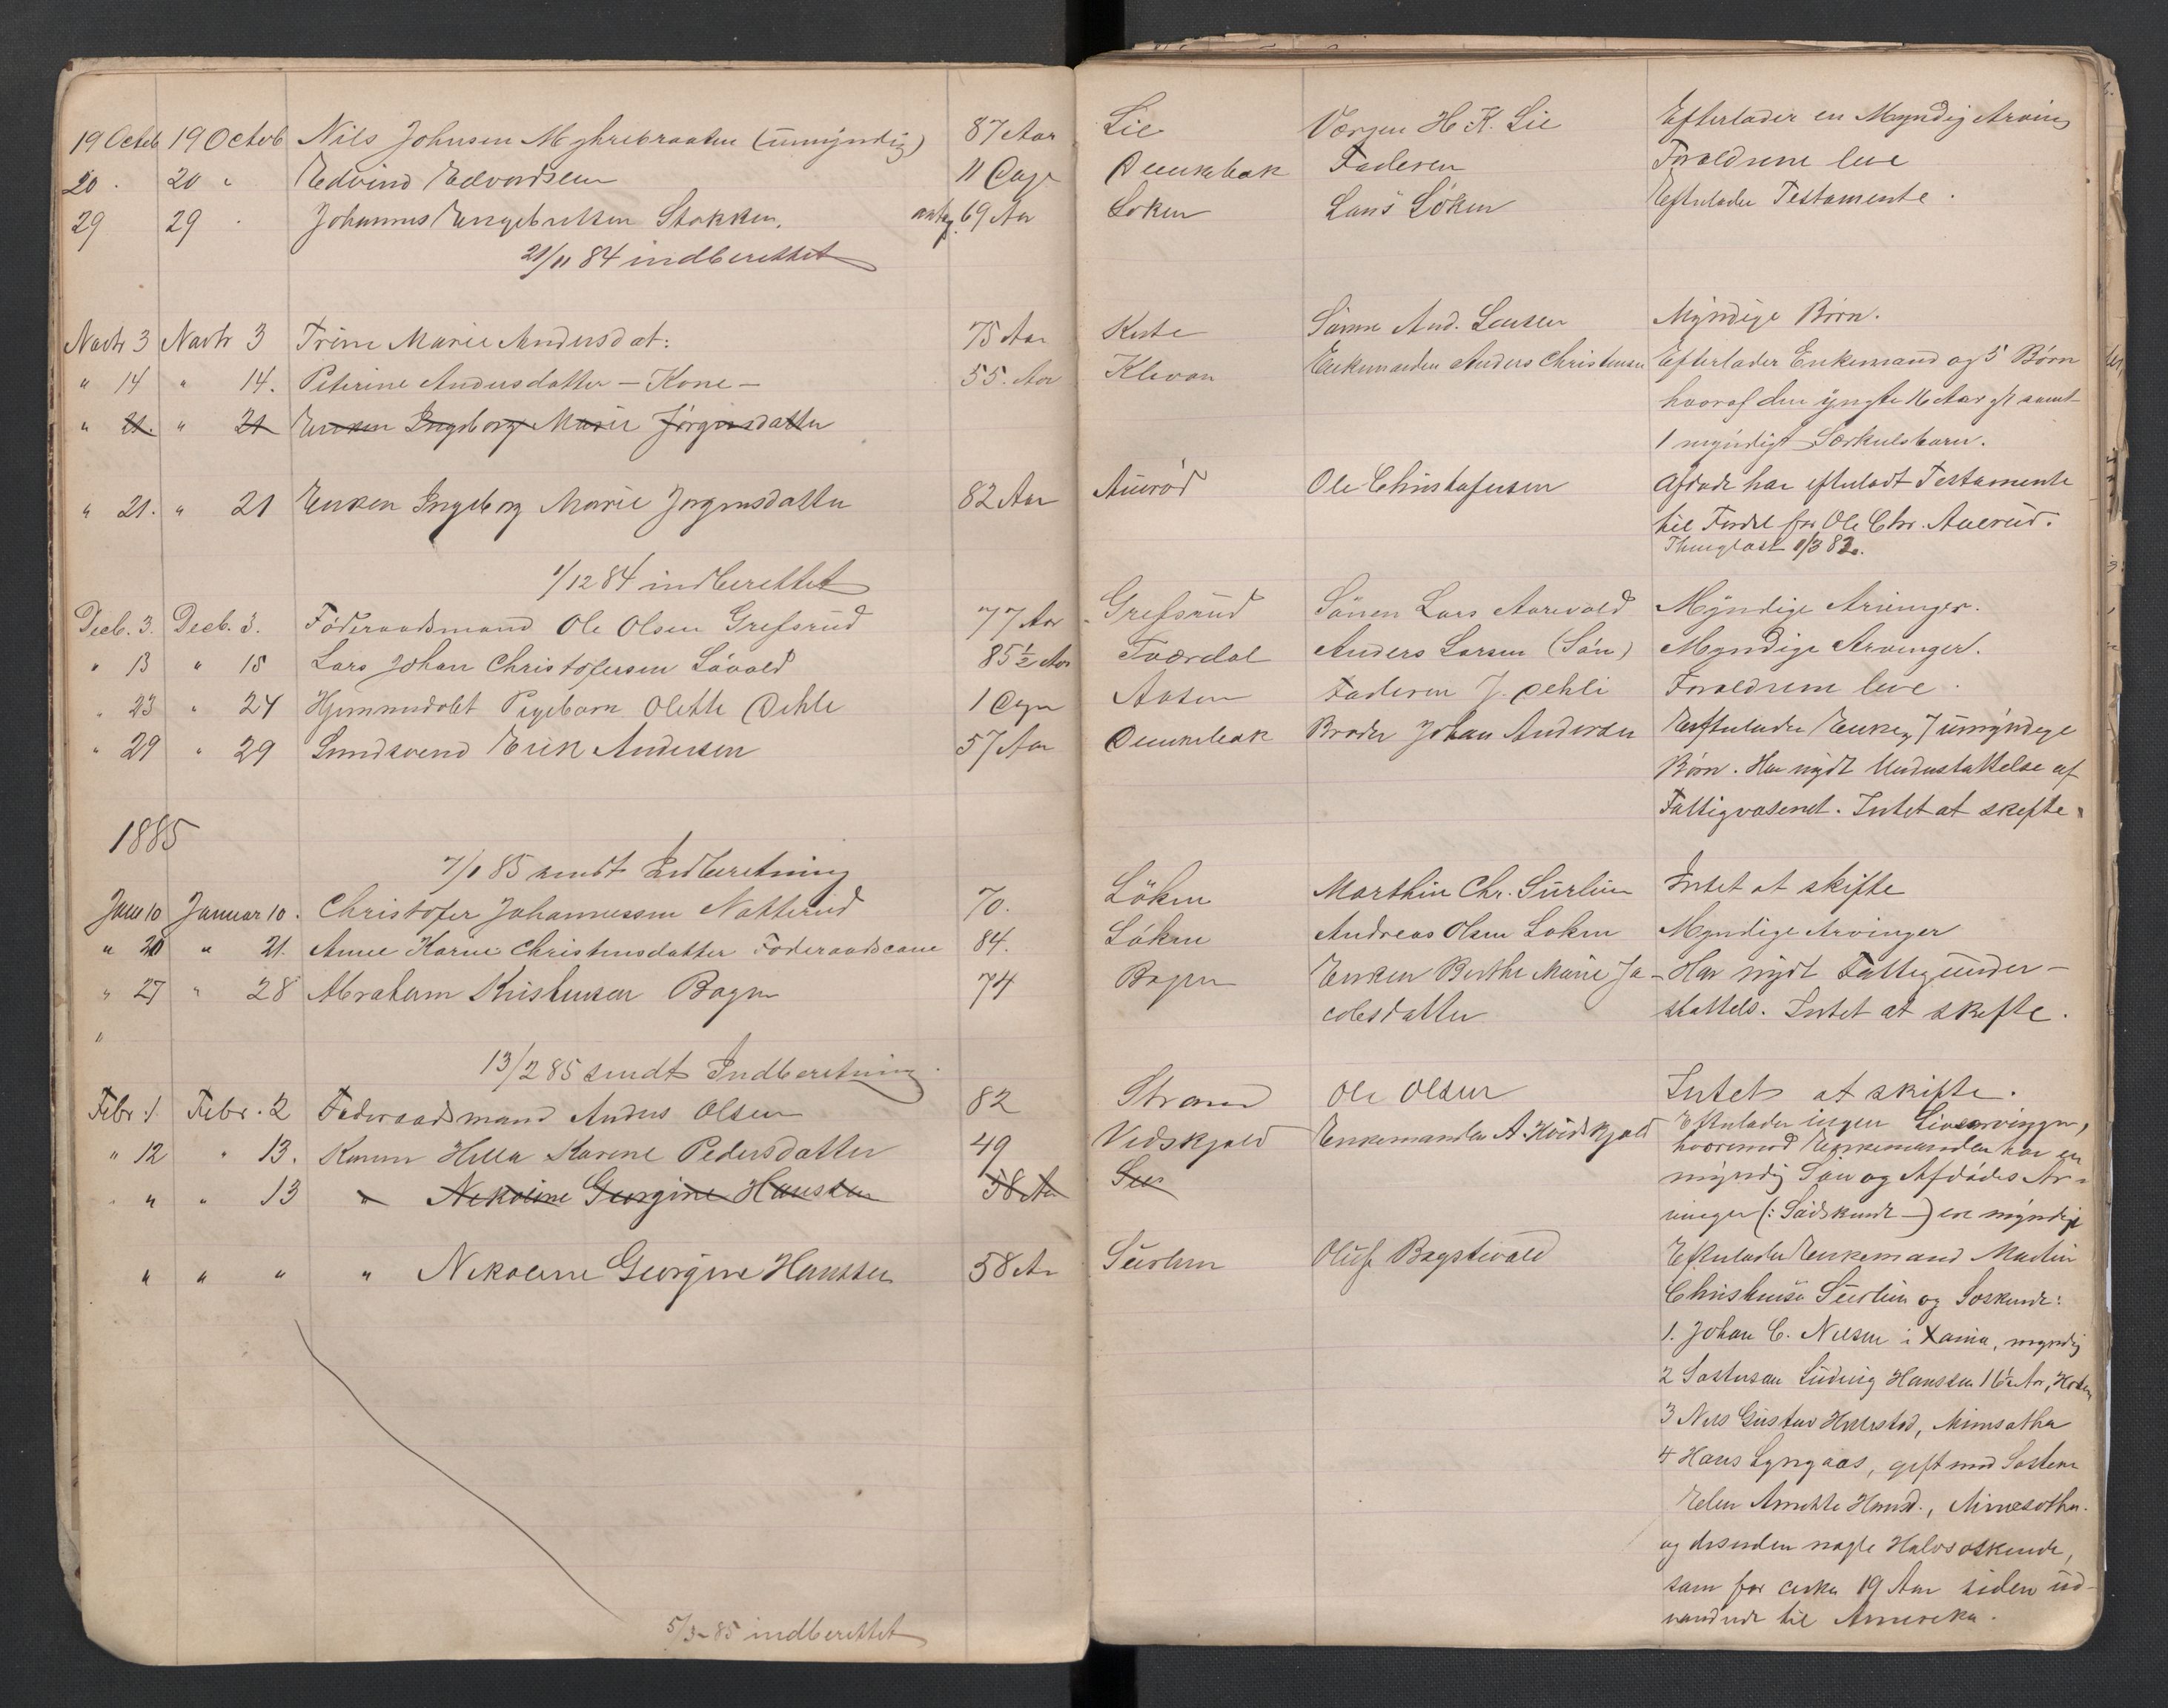 19 Octob 19 Octob Nils Johnsen Myhrebraaten (umyndig) 87 Aar Lie Værgen H. K. Lie Efterlader en Myndig Arving
20 . 20 " Edvind Edvardsen 11 Dage Faderen Forældrene leve
29 29 . Johannes Engebretsen Stokken. antag. 69 Aar Løken Lars Løken Efterlader Testamente .
21/11 84 indberettet
Novbr 3 Novbr 3 Trine Marie Andersdat: 75 Aar And. Myndige Børn.
" 14 " 14. Peterine Andersdatter - Kone - 55. Aar Klevan Enkemanden Anders Christensen Efterlader Enkemand og 5 Børn
hvoraf den yngste 16 Aar gl samt
" 21. " 21 Enken Ingeborg Marie Jørgensdatter 1 myndigt Særkulsbarn.
" 21. " 21 Enken Ingeborg Marie Jørgensdatter 82 Aar Auerød Ole Christofersen Afdøde har efterladt Testamente
til Fordel for Ole Chr. Auerud.
Thinglæst 1/3 82.
1/12 84 indberettet
Decb. 3. Decb. 3. Föderaadsmand Ole Olsen Grefsrud 77 Aar Grefsrud Sönen Lars Aarevold Myndige Arvinger.
" 13 " 15 Lars Johan Christofersen Lövold 85½ Aar Tværdal Anders Larsen (Sön) Myndige Arvinger.
" 23 " 24 Hjemmedøbt Pigebarn Olette Oehli 1 Dgn Aasen Faderen J. Oehli Forældrene leve .
" 29 " 29 Lundsvend Erik Andersen 57 Aar Broder Johan Andersen Efterlader Enke, 7 umyndige
Børn. Har nydt Understøttelse af
Fattigvæsenet. Intet at skifte.
1885
7/1 85 sendt Indberetning
Janu 10 Januar 10. Christofer Johannessen Natterud 70. Löken Marthin Chr. Surlien Intet at skifte
" 20 " 21. Anne Karine Christensdatter Föderaadscone 84. Löken Andreas Olsen Løken Myndige Arvinger
" 27 " 28 Abraham Kristensen Bøgen 74 Bøgen Enken Berthe Marie Ja- Har nydt Fattigunder-
cobsdatter støttels. Intet at skifte.
"
13/2 85 sendt Indberetning.
Febr. 1. Febr. 2 Føderaadsmand Anders Olsen 82 Strand Ole Olsen Intet at skifte.
" 12 " 13. Konen Helle Karine Pedersdatter 49 Vedskjold Enkemanden A. Hvidskjold Efterlader ingen Livsarvinger,
hvorimod Enkemanden har en
" " 13 " Nekoline Georgine Hanssen 58 Aar Sur myndig Søn og Afdødes Ar-
vinger (: Södskende -) ere myndige
" " " " Nekoline Georgine Hanssen 58 Ar Surlien Oluf Bøgstivold Efterlader Enkemand Martin
Christensen Surlien og Søskende:
1. Johan C. Nilsen i Xania, myndig
2 Søstersøn Ludvig Hanssen 16½ Aar,
3 Nils Gustav Minsotha
4 Hans Lyngaas, gift med Søsteren
Elen Annette Hansd., Minesotha.
og desuden nogle Halvsøskende,
som for cirka 19 Aar siden ud-
vandrede til Amerika.
5/3-85 indberettet